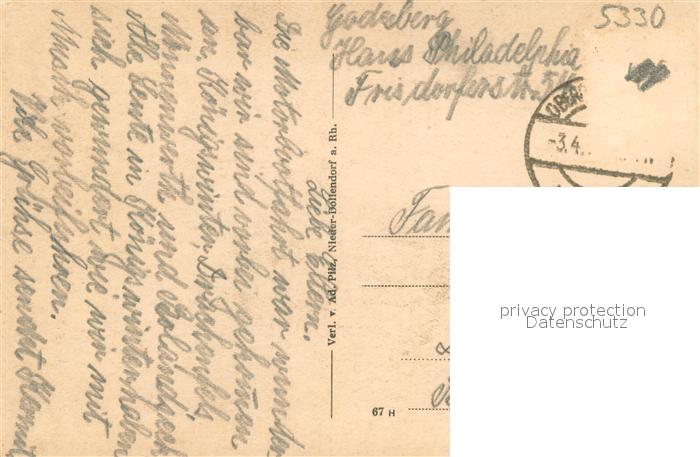 Godesberg
Haus Philadelphia
Frisdorferstr.
5330
-3.4.
Liebe Eltern.
Die Motorbootfahrt war wunder-
bar wir sind vorbei gekommen
an. Königswinter, Drachenfels
Nonnenwerth und Rolandseck
Alle Leute in Königswinter haben
sich gewundert wie wir mit
Musik
Viele Grüße sendet
Verl. v. Ad. Pilz, Nieder-Dollendorf a. Rh.
Fam
67 H
privacy protection
Datenschutz